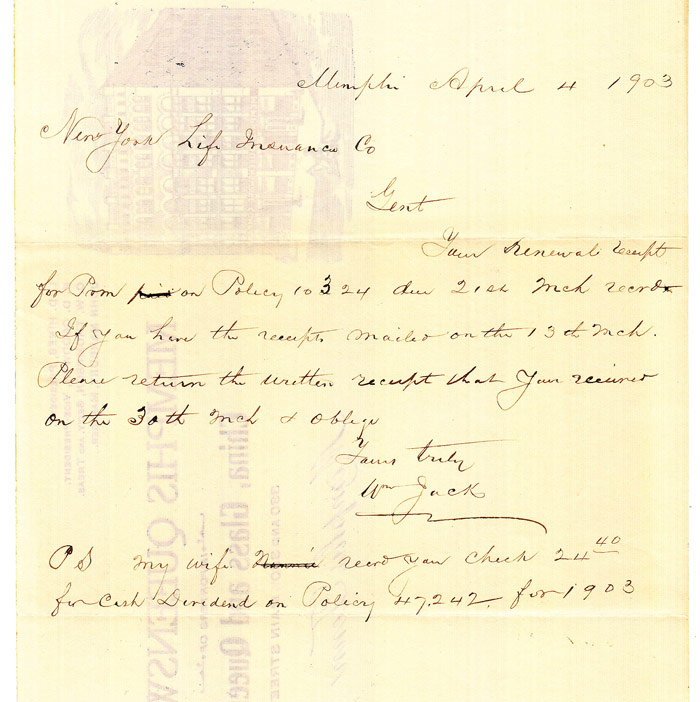 Memphis April 4 1903
New York Life Insurance Co
Gent
Your Renewal receipt
for Prem paid on Policy 10324 due 21st Mch recvd
If you have the receipts mailed on the 13th Mch.
Please return the written receipt that you received
on the 30th Mch & Oblige
Yours truly
Wm Jack
P S My wife Nannie recvd your check 24 40
for Cash Dividend on Policy 47.242. for 1903
MEMPHIS QUEENSW
China, Glass and Quee